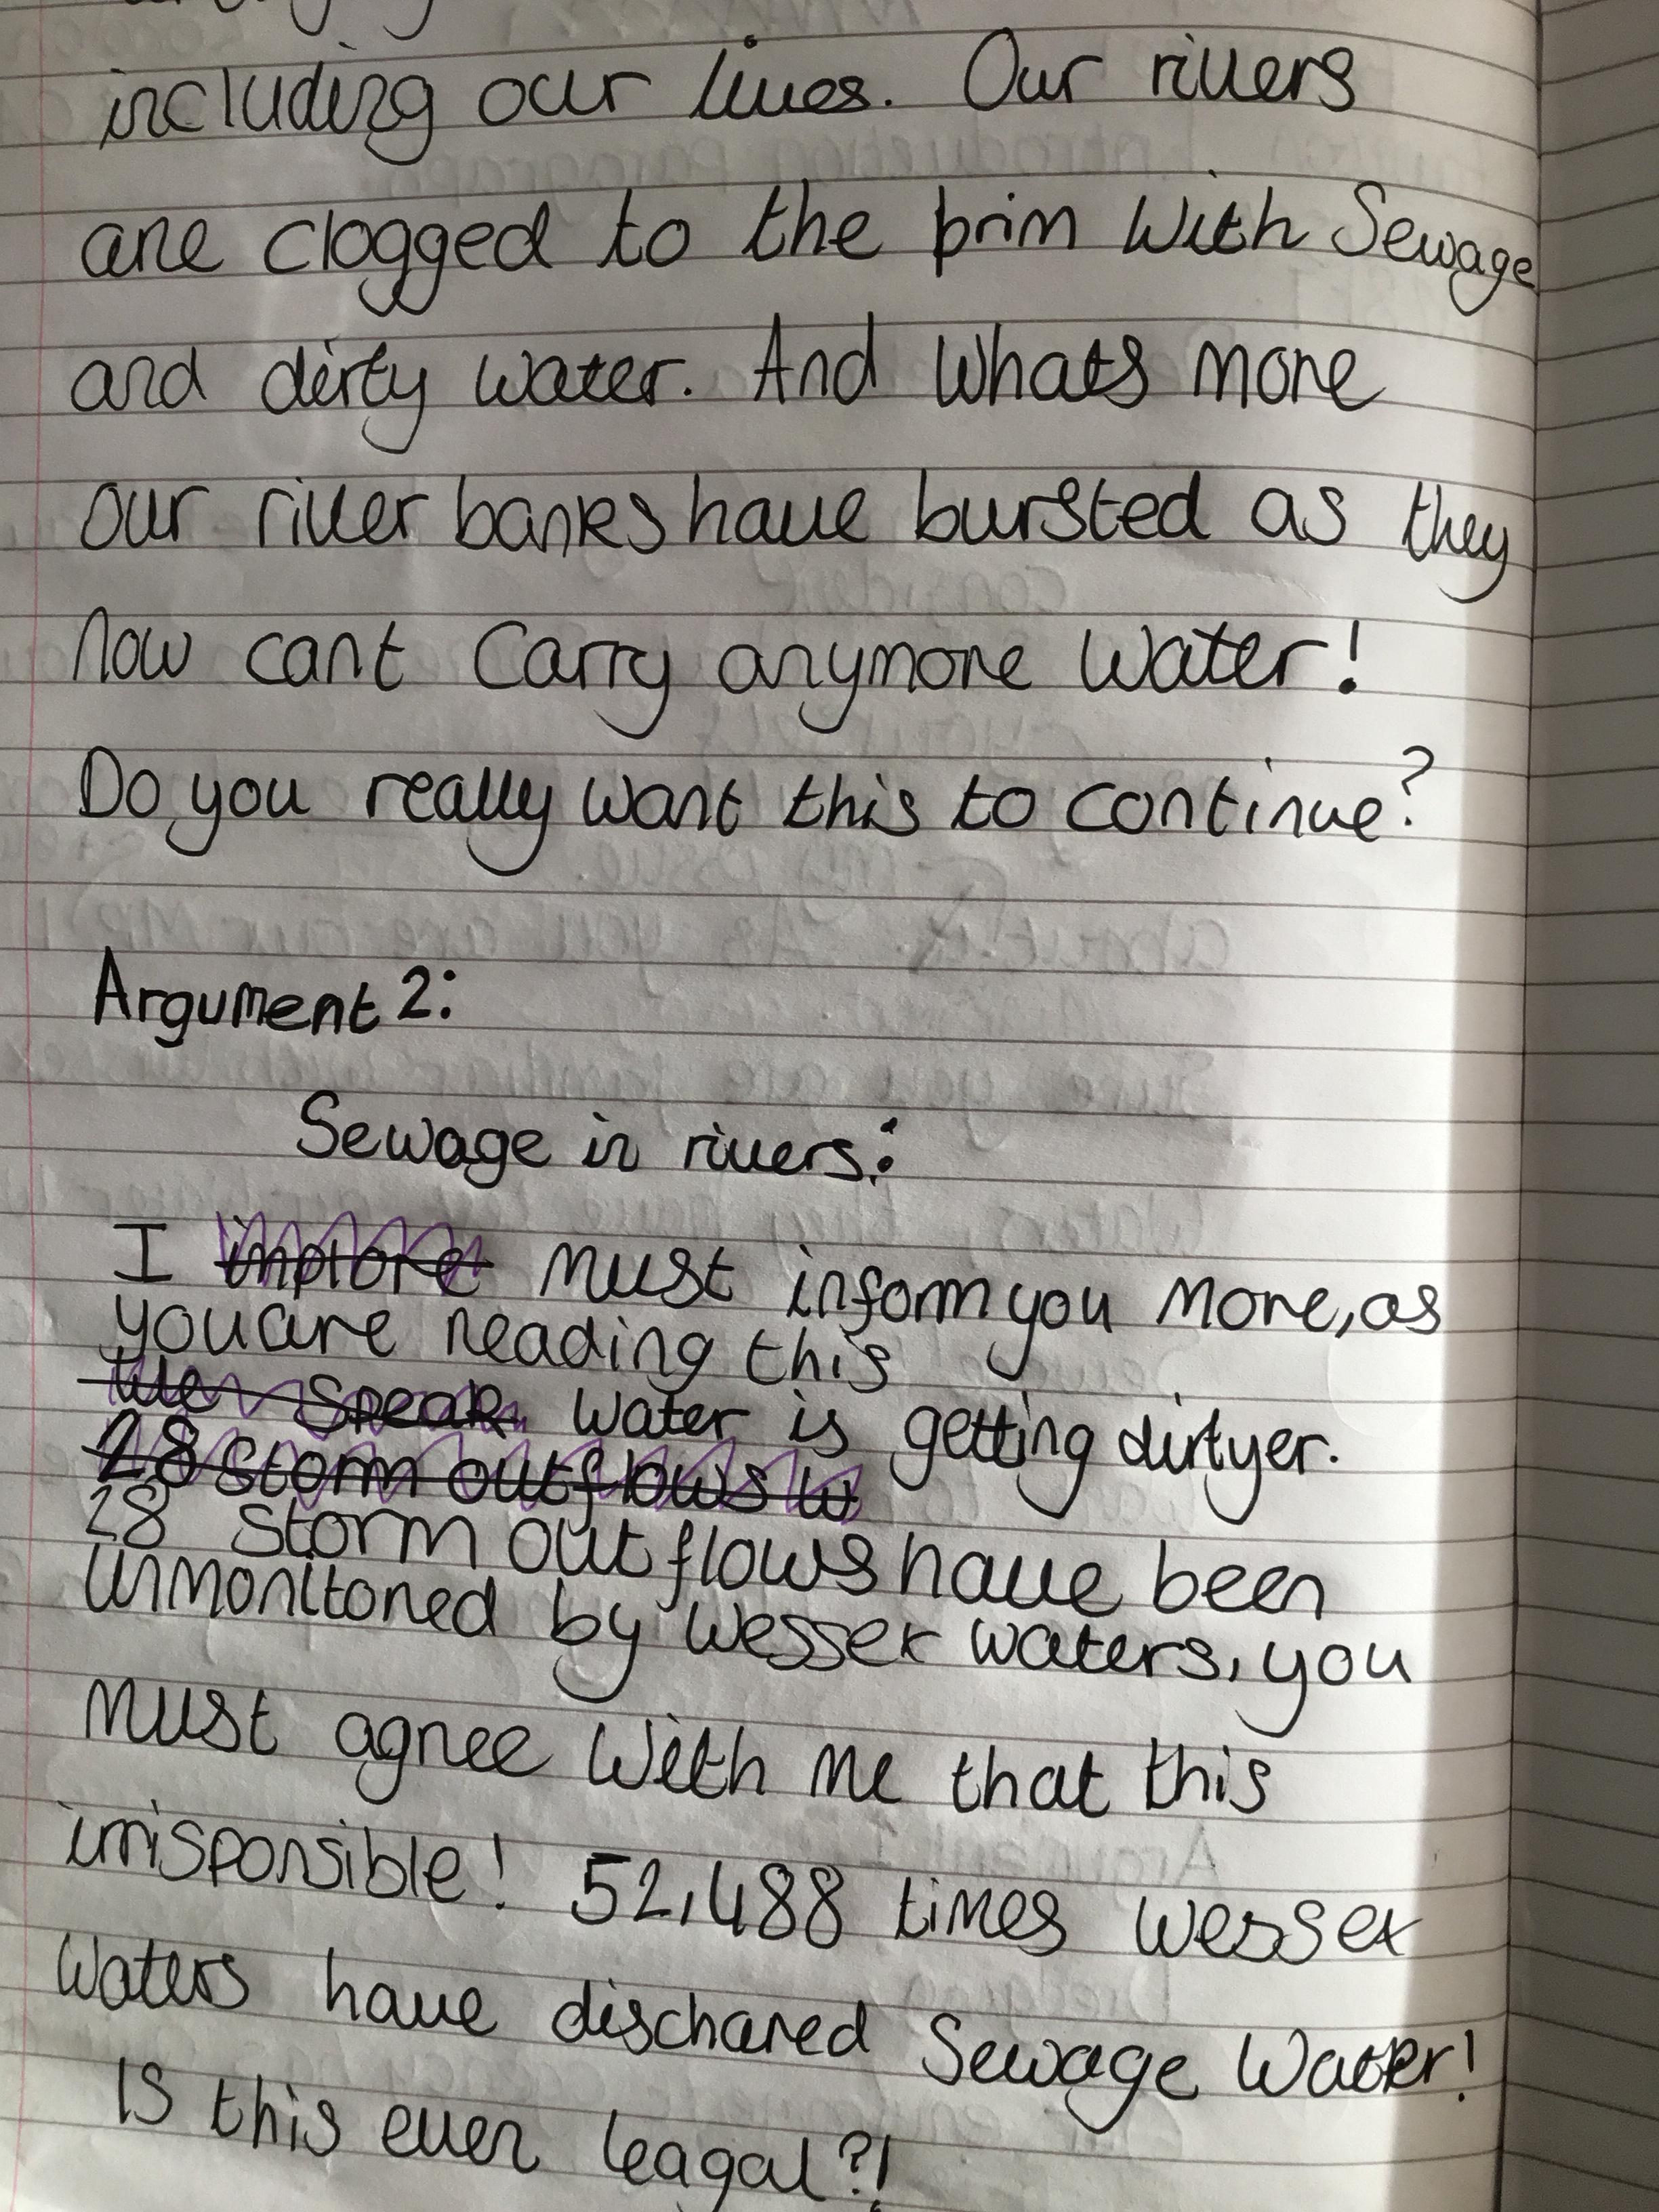 including our lives. Our rivers
are clogged to the brim With Sewage
and dirty water. And Whats more
our river banks have bursted as they
now cant Carry anymore Water!
Do you really want this to continue?
Argument 2:
Sewage in rivers:
I implore must inform you More, as
you are reading this
We speak Water is getting dirtyer.
28 storm outflows w
28 storm outflows have been
Unmonitored by Wessex Waters, you
must agree With me that this
irrisponsible! 52,488 times Wessex
Waters have dischared Sewage Water!
Is this even leagal?!